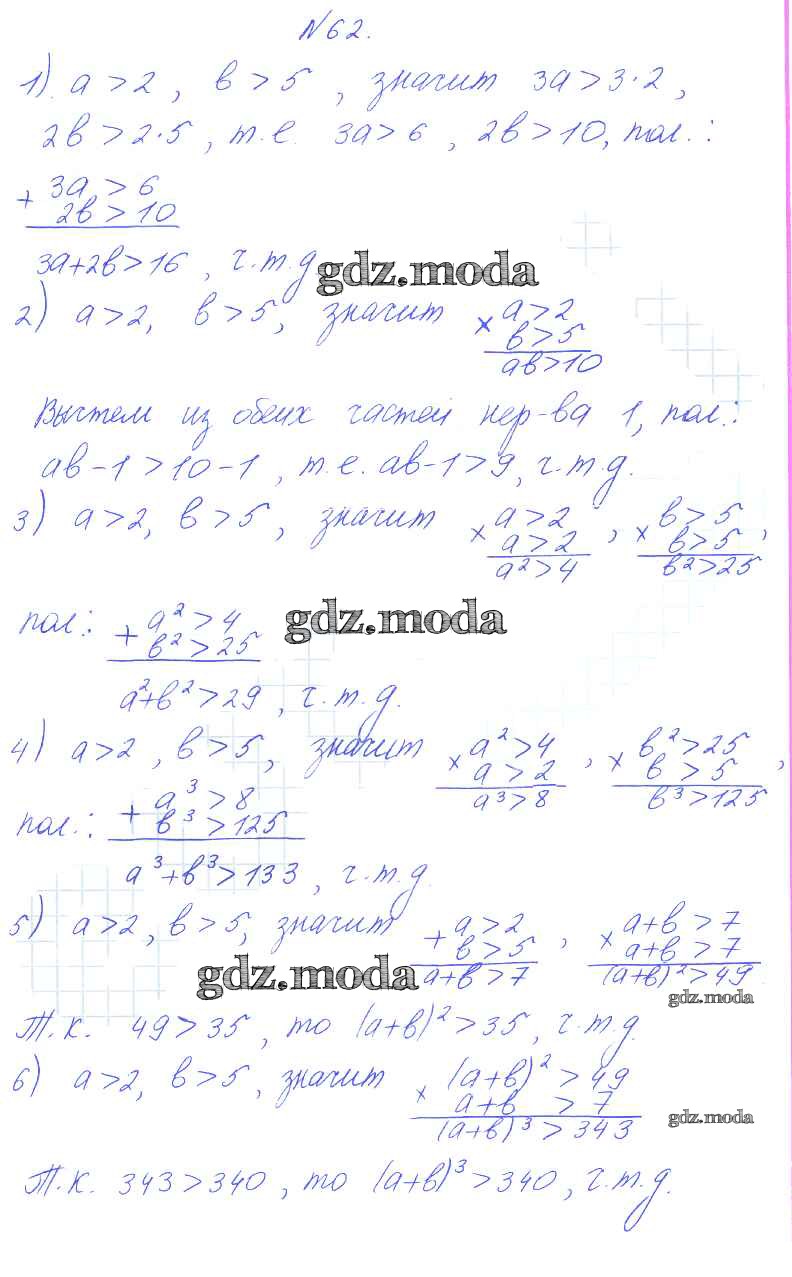 №62.
1) a > 2, в > 5, значит 3a > 3·2,
2в > 2·5, т.е. 3a > 6, 2в > 10, пол.:
+ 3a > 6
2в > 10
3a+2в > 16, ч.т.д.
gdz.moda
2) a > 2, в > 5, значит × a > 2
в > 5
aв > 10
Вычтем из обеих частей нер-ва 1, пол.:
aв - 1 > 10 - 1, т.е. aв - 1 > 9, ч.т.д.
3) a > 2, в > 5, значит × a > 2, × в > 5,
a > 2 в > 5
a² > 4 в² > 25
пол.: + a² > 4
в² > 25
gdz.moda
a²+в² > 29, ч.т.д.
4) a > 2, в > 5, значит × a² > 4, × в² > 25,
a > 2 в > 5
a³ > 8 в³ > 125
пол.: + a³ > 8
в³ > 125
a³+в³ > 133, ч.т.д.
5) a > 2, в > 5, значит + a > 2, × a+в > 7
в > 5 a+в > 7
a+в > 7 (a+в)² > 49
gdz.moda
gdz.moda
Т.к. 49 > 35, то (a+в)² > 35, ч.т.д.
6) a > 2, в > 5, значит × (a+в)² > 49
a+в > 7
(a+в)³ > 343
gdz.moda
Т.к. 343 > 340, то (a+в)³ > 340, ч.т.д.